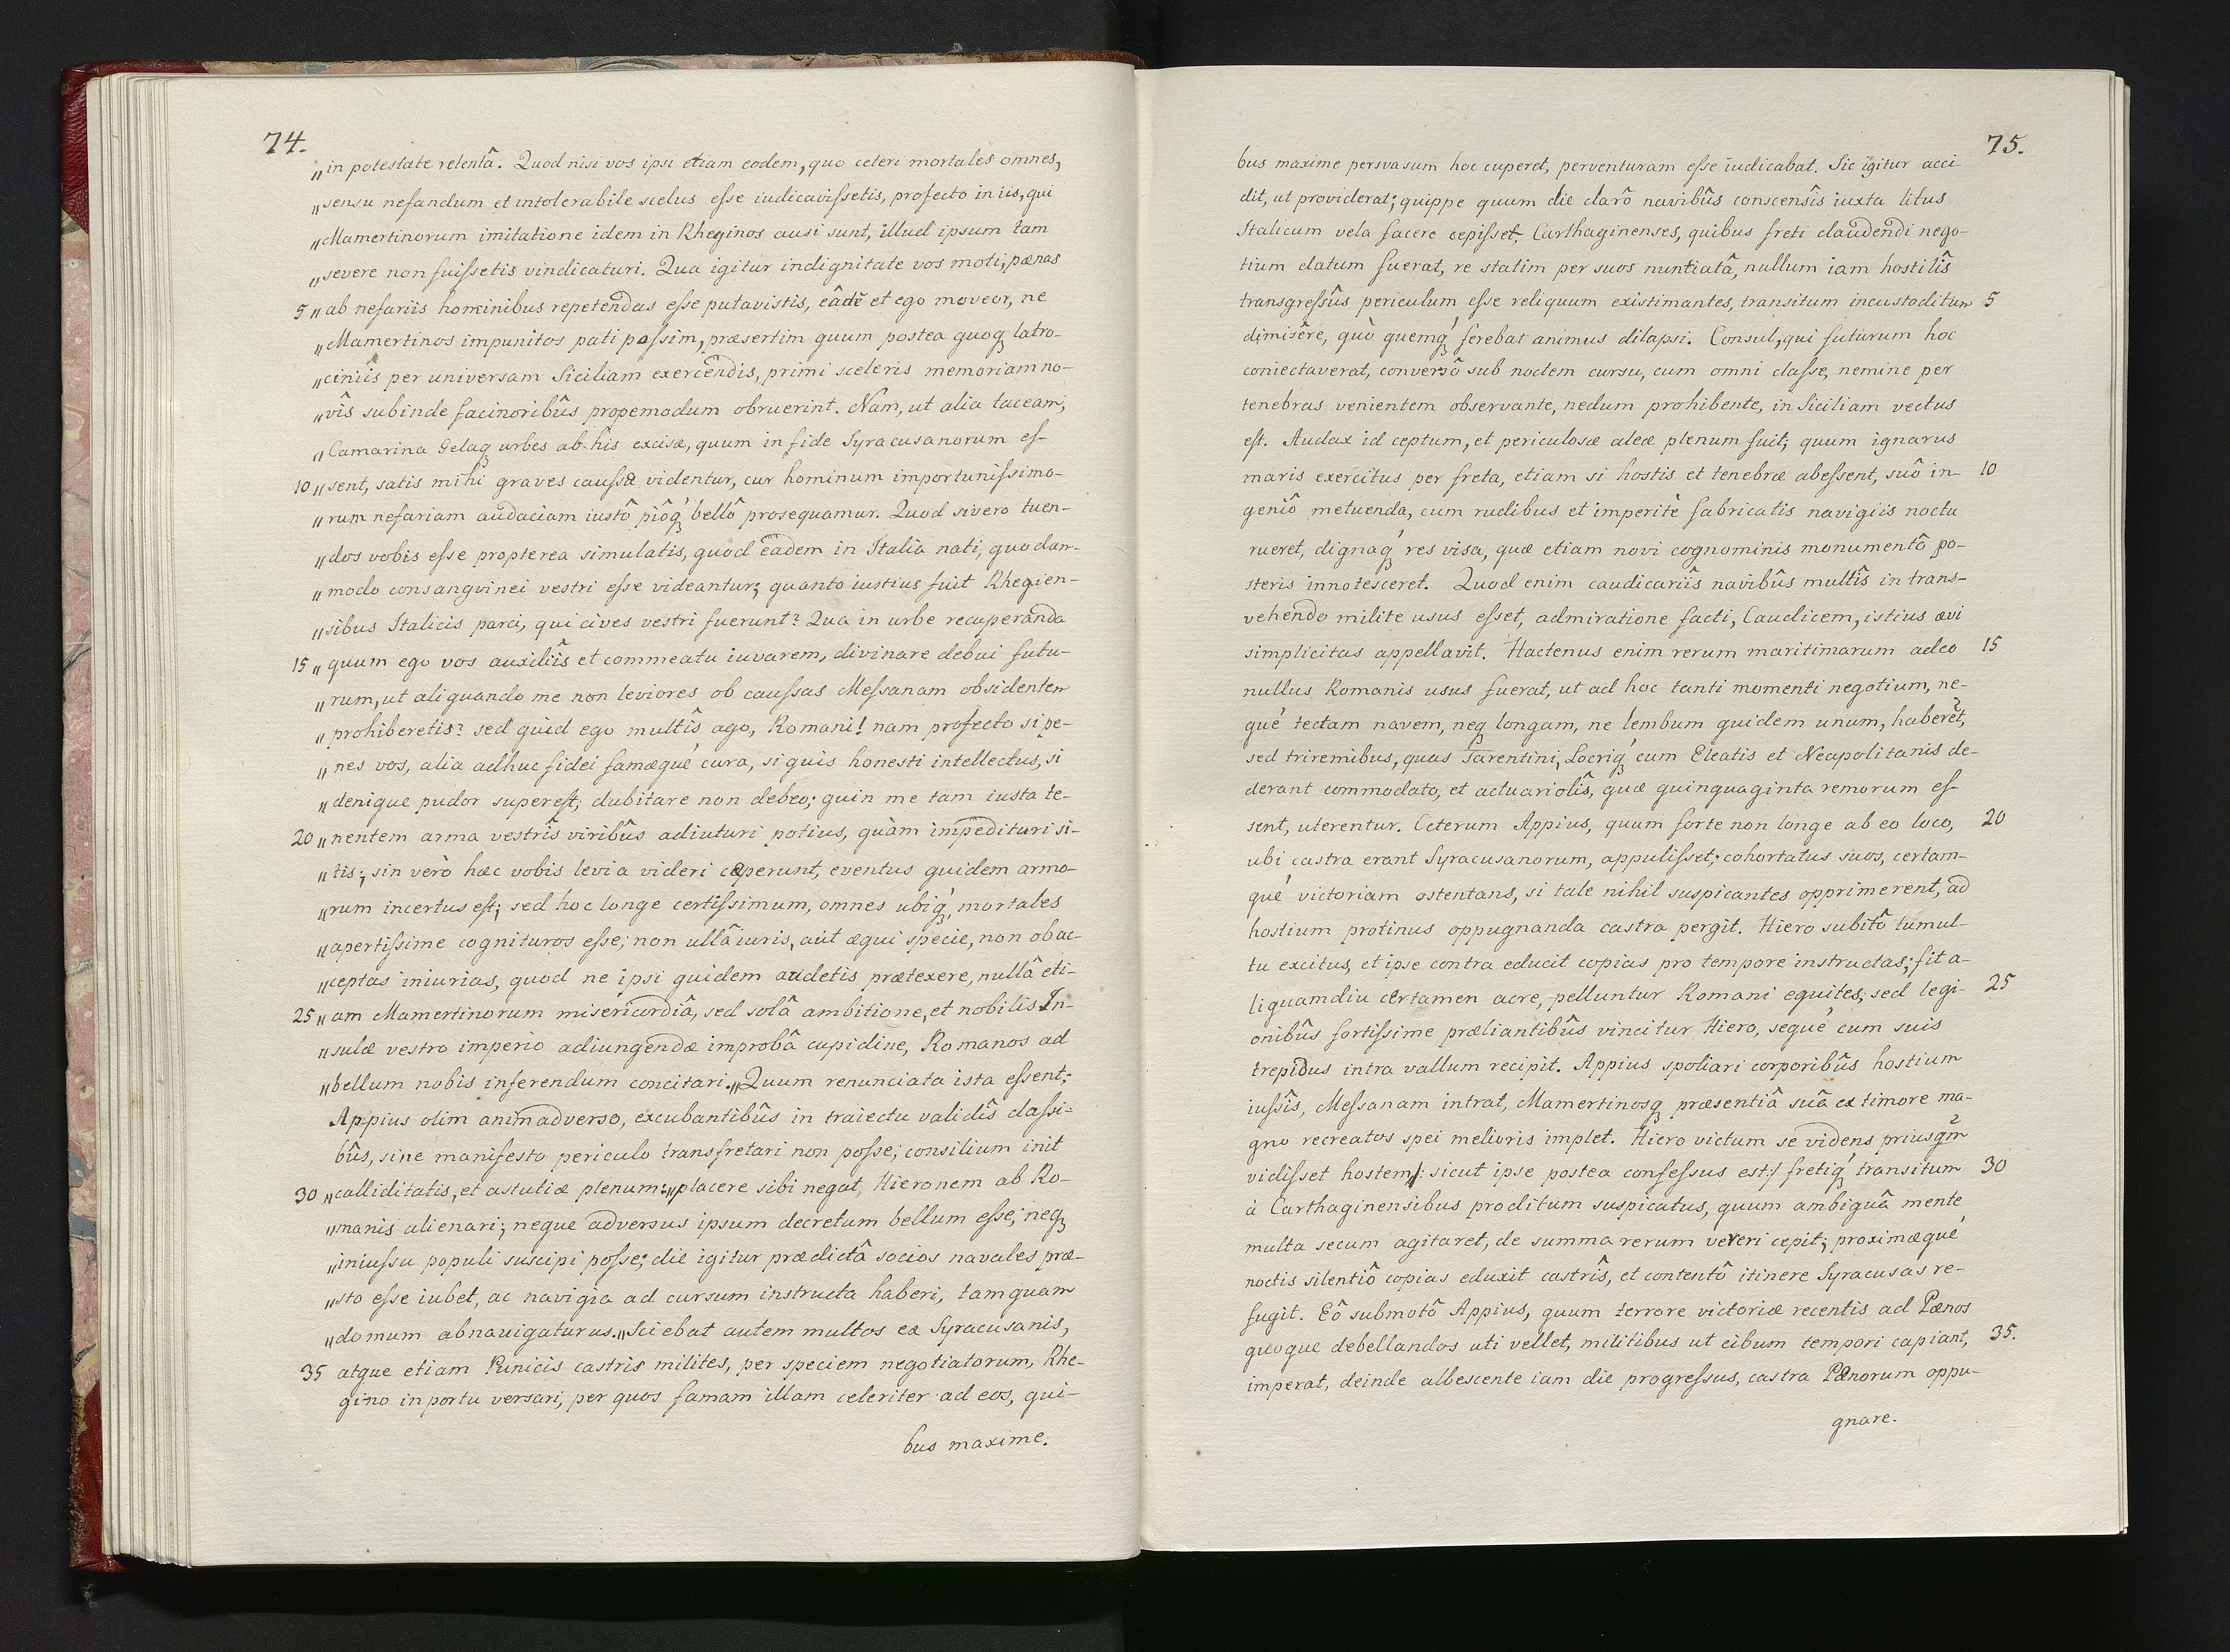 74.
„in potestate retentâ. Quod nisi vos ipsi etiam eodem, quo ceteri mortales omnes,
„sensu nefandum et intolerabile scelus eſse iudicaviſsetis, profecto in iis, qui
„Mamertinorum imitatione idem in Rheginos ausi sunt, illud ipsum tam
„severe non fuiſsetis vindicaturi. Qua igitur indignitate vos moti, pœnas
5 „ab nefariis hominibus repetendas eſse putavistis, eâdē et ego moveor, ne
„Mamertinos impunitos pati poſsim, præsertim quum postea quoqꝫ latro-
„ciniîs per universam Siciliam exercendis, primi sceleris memoriam no-
„vîs subinde facinoribûs propemodum obruerint. Nam, ut alia taceam,
„Camarina Gelaqꝫ urbes ab his excisæ, quum in fide Syracusanorum eſ-
10 „sent, satis mihi graves cauſsæ videntur, cur hominum importuniſsimo-
„rum nefariam audaciam iustô piôqꝫ́ bellô prosequamur. Quod si vero tuen-
„dos vobis eſse propterea simulatis, quod eâdem in Italia nati, quodam-
„modo consangvinei vestri eſse videantur; quanto iustius fuit Rhegien-
„sibus Italicis parci, qui cives vestri fuerunt? Qua in urbe recuperanda
15 „quum ego vos auxiliîs et commeatu iuvarem, divinare debui futu-
„rum, ut aliquando me non leviores ob caussas Meſsanam obsidentem
„prohiberetis? sed quid ego multîs ago, Romani! nam profecto si pe-
„nes vos, alia adhuc fidei famæqué cura, si quis honesti intellectus, si
„denique pudor supereſt; dubitare non debeo; quin me tam iusta te-
20 „nentem arma vestrîs viribûs adiuturi potius, quàm impedituri si-
„tis; sin verò hæc vobis levia videri cœperunt, eventus quidem armo-
„rum incertus eſt; sed hoc longe certiſsimum, omnes ubiqꝫ́, mortales
„apertiſsime cognituros eſse; non ullâ iuris, aut æqui specie, non ob ac-
„ceptas iniurias, quod ne ipsi quidem audetis prætexere, nullâ eti-
25 „am Mamertinorum misericordiâ, sed solâ ambitione, et nobilis In-
„sulæ vestro imperio adiungendæ improbâ cupidine, Romanos ad
„bellum nobis inferendum concitari.„ Quum renunciata ista eſsent;
Appius olim animadverso, excubantibûs in traiectu validîs claſsi-
bûs, sine manifesto periculo transfretari non poſse; consilium init
30 „calliditatis, et astutiæ plenum:„placere sibi negat, Hieronem ab Ro-
„manis alienari; neque adversus ipsum decretum bellum eſse; neqꝫ
„iniuſsu populi suscipi poſse; die igitur prædictâ socios navales præ-
„sto eſse iubet, ac navigia ad cursum instructa haberi, tamquam
„domum abnauigaturus.„ Sciebat autem multos ex Syracusanis,
35 atque etiam Punicis castris milites, per speciem negotiatorum, Rhe-
gino in portu versari, per quos famam illam celeriter ad eos, qui-
bus maxime.
75.
bus maxime persvasum hoc cuperet, perventuram eſse iudicabat. Sic igitur acci-
dit, ut providerat; quippe quum die clarô navibûs conscensîs iuxta litus
Italicum vela facere cepiſset, Carthaginenses, quibus freti claudendi nego-
tium datum fuerat, re statim per suos nuntiatâ, nullum iam hostilîs
transgreſsûs periculum eſse reliquum existimantes, transitum incustoditum 5
dimisêre, quò quemqꝫ́ ferebat animus dilapsi. Consul, qui futurum hoc
coniectaverat, conversô sub noctem cursu, cum omni claſse, nemine per
tenebras venientem observante, nedum prohibente, in Siciliam vectus
eſt. Audax id ceptum, et periculosæ aleæ plenum fuit; quum ignarus
maris exercitus per freta, etiam si hostis et tenebræ abeſsent, suô in- 10
geniô metuenda, cum rudibus et imperitè fabricatis navigiis noctu
rueret, dignaqꝫ́ res visa, quæ etiam novi cognominis monumentô po-
steris innotesceret. Quod enim caudicariîs navibûs multîs in trans-
vehendo milite usus eſset, admiratione facti, Caudicem, istius ævi
simplicitas appellavit. Hactenus enim rerum maritimarum adeo 15
nullus Romanis usus fuerat, ut ad hoc tanti momenti negotium, ne-
qué tectam navem, neqꝫ longam, ne lembum quidem unum, haberet,
sed triremibus, quas Tarentini, Locriqꝫ́ cum Eleatis et Neapolitanis de-
derant commodato, et actuariolîs, quæ quinquaginta remorum eſ-
sent, uterentur. Ceterum Appius, quum forte non longe ab eo loco, 20
ubi castra erant Syracusanorum, appuliſset; cohortatus suos, certam-
qué victoriam ostentans, si tale nihil suspicantes opprimerent, ad
hostium protinus oppugnanda castra pergit. Hiero subitô tumul-
tu excitus, et ipse contra educit copias pro tempore instructas; fit a-
liquamdiu certamen acre, pelluntur Romani equites; sed legi- 25
onibûs fortiſsime præliantibûs vincitur Hiero, sequé cum suis
trepidus intra vallum recipit. Appius spoliari corporibûs hostium
iuſsîs, Meſsanam intrat, Mamertinosqꝫ præsentiâ suâ ex timore ma-
gno recreatos spei melioris implet. Hiero victum se videns priusqm̃
vidiſset hostem /: sicut ipse postea confeſsus est :/ fretiqꝫ́ transitum 30
à Carthaginensibus proditum suspicatus, quum ambiguâ mente
multa secum agitaret, de summa rerum vereri cepit; proximæqué
noctis silentiô copias eduxit castrîs, et contentô itinere Syracusas re-
fugit. Eô submotô Appius, quum terrore victoriæ recentis ad Pœnos
quoque debellandos uti vellet, militibus ut cibum tempori capiant, 35.
imperat, deinde albescente iam die progreſsus, castra Pœnorum oppu-
gnare.